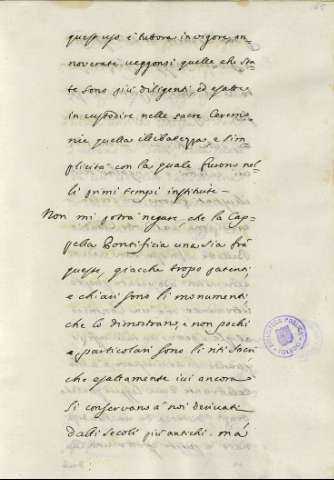 quest'uso è tuttora in vigore, an-
noverate veggonsi quelle che sta-
te sono più diligenti, ed esatte
in custodire nelle sacre Ceremo-
nie quella illibatezza, e sim-
plicità con la quale furono nel-
li primi tempi institute-
Non mi potrà negare, che la Cap-
pella Pontificia una sia frà
queste, giacche troppo patenti
e chiari sono li monumenti
che lo dimostrano, e non pochi
e particolari sono li riti sacri
che esattamente ivi ancora
si conservano à noi derivati
dalli secoli più antichi. mà
BIBLIOTECA PUBLICA
TOLEDO